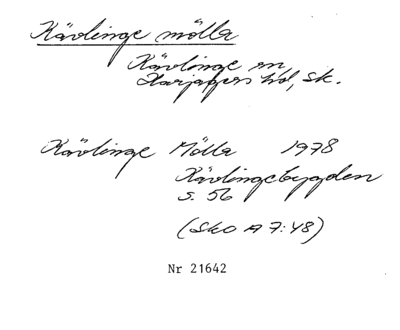 Kävlinge mölla
Kävlinge sn,
Harjagers hd, Sk.
Kävlinge Mölla 1978
Kävlingebygden
s. 56
(Sko A 7:48)
Nr 21642